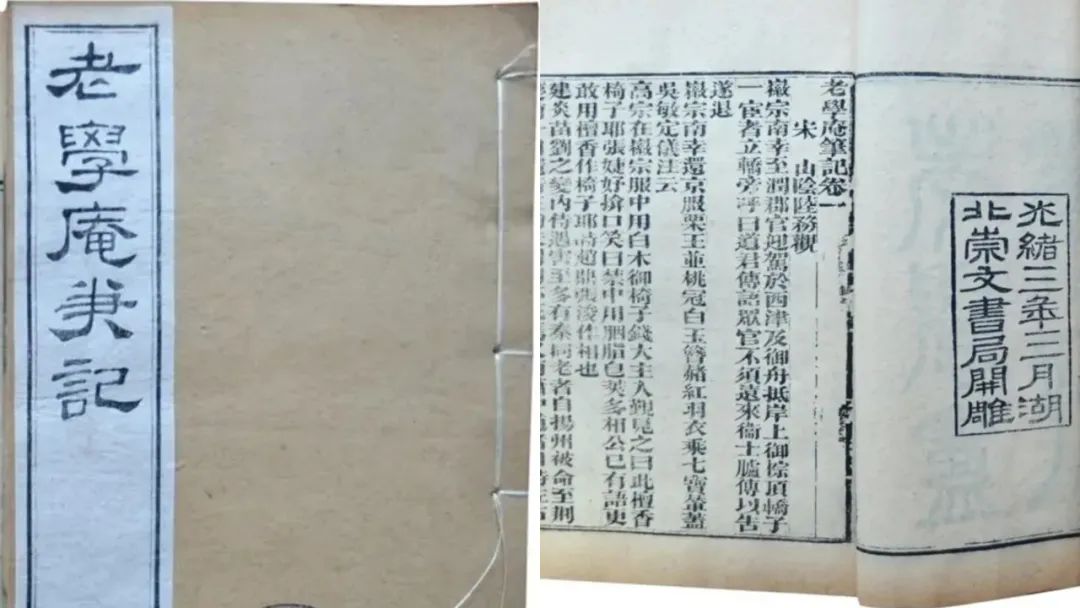 老學庵筆記
光緒三年三月湖
北崇文書局開雕
老學庵筆記卷一
宋 山陰陸務觀
徽宗南幸至潤郡官迎駕於西津及御舟抵岸上御棕頂轎子
一宦者立轎旁呼曰道君傳語眾官不須遠來衞士臚傳以告
遂退
徽宗南幸還京服栗玉並桃冠白玉簪赭紅羽衣乘七寶輦蓋
吳敏定儀注云
高宗在徽宗服中用白木御椅子錢大主入覲見之曰此檀香
椅子耶張婕妤掩口笑曰禁中用胭脂皂莢多相公已有語更
敢用檀香作椅子耶時趙鼎張浚作相也
建炎苗劉之變內侍遇害至多有秦同老者自揚州被命至荊